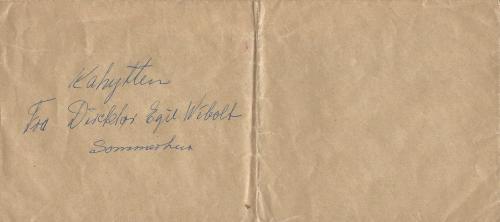 Kahytten
Fra Direktør Egil Wibolt
Sommerhus